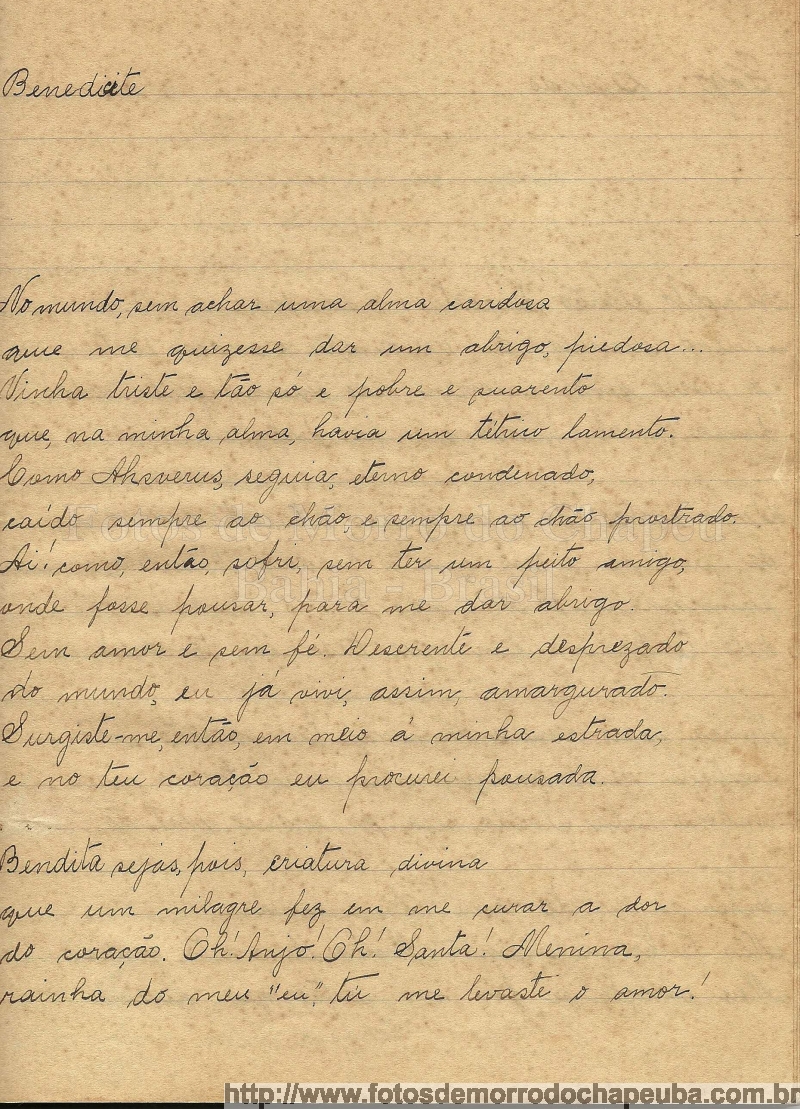 Benedicite
No mundo, sem achar uma alma caridosa
que me quizesse dar um abrigo, piedosa...
Vinha triste e tão só e pobre e suarento
que, na minha alma, havia um tétrico lamento.
Como Ahsverus, seguia, eterno condenado,
caído sempre ao chão, e sempre ao chão prostrado.
Ai! como, então, sofri, sem ter um peito amigo,
onde fosse pousar, para me dar abrigo.
Sem amor e sem fé. Descrente e desprezado
do mundo, eu já vivi, assim, amargurado.
Surgiste-me, então, em meio á minha estrada,
e no teu coração eu procurei pousada.
Bendita sejas, pois, criatura divina
que um milagre fez em me curar a dor
do coração. Oh! Anjo! Oh! Santa! Menina,
rainha do meu "eu", tu me levaste o amor!
Fotos de Morro do Chapéu
Bahia - Brasil
http://www.fotosdemorrodochapeuba.com.br